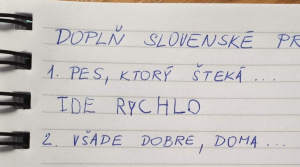 DOPLŇ SLOVENSKÉ PR
1. PES, KTORÝ ŠTEKÁ ...
IDE RÝCHLO
2. VŠADE DOBRE, DOMA ...